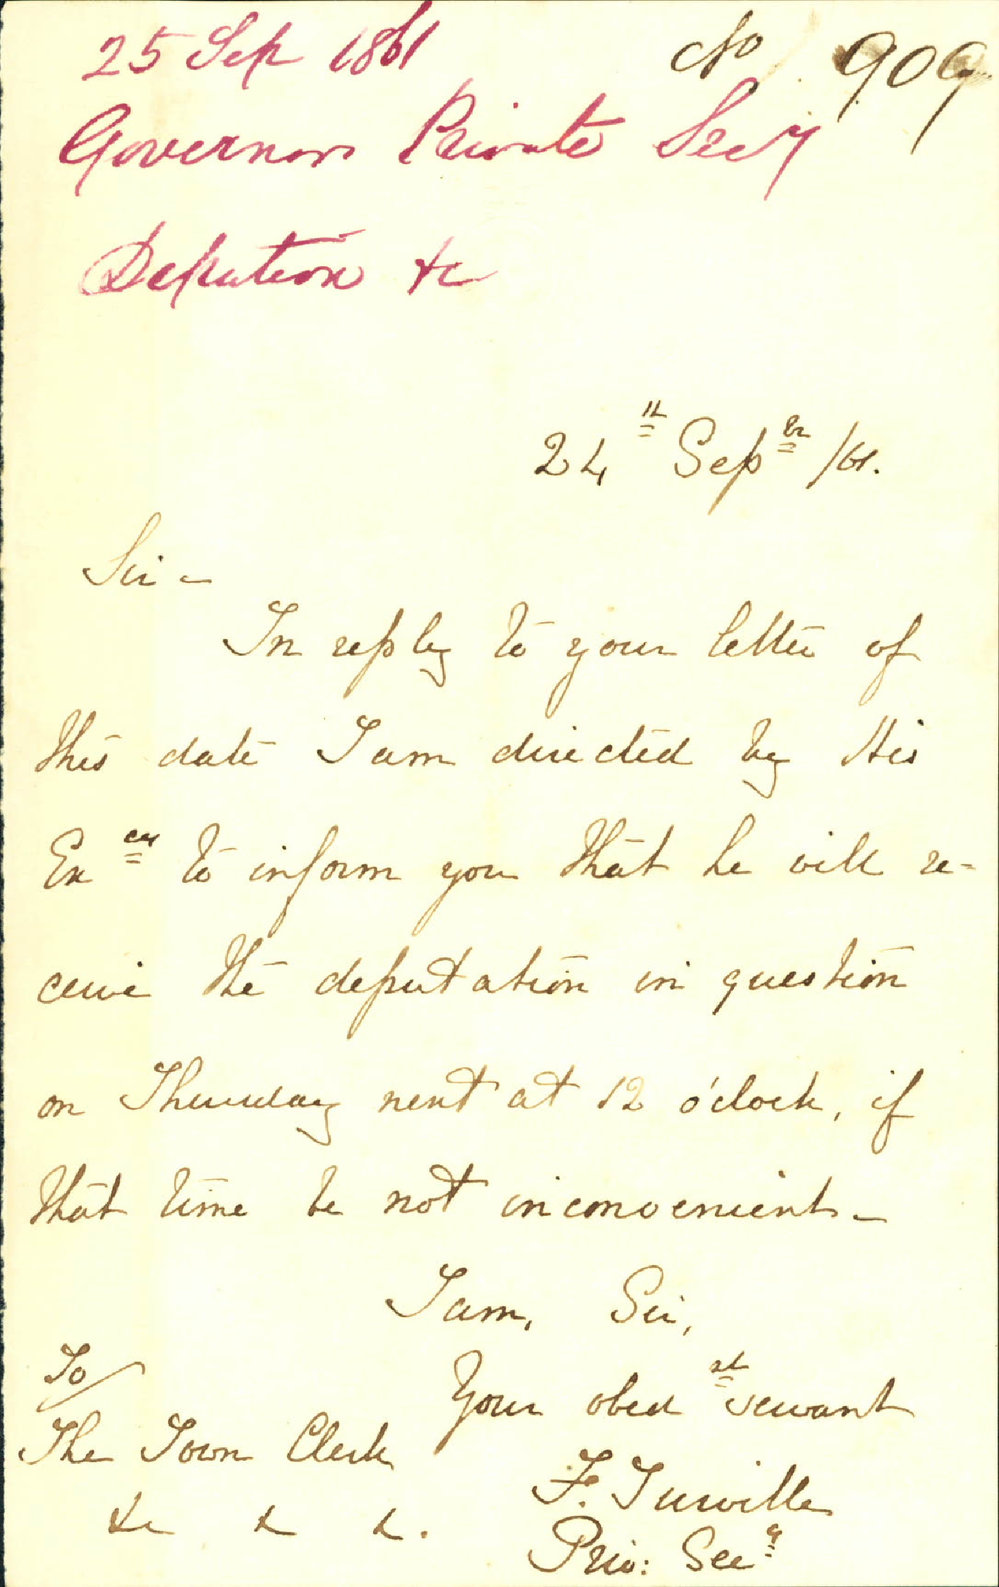 25 Sep 1861 No 909
Governors Private Secy
Deputation &c
24th Sepbr /61.
Sir –
In reply to your letter of
this date I am directed by His
Excy to inform you that he will re-
ceive the deputation in question
on Thursday next at 12 o'clock, if
that time be not inconvenient –
I am, Sir,
Your obedt servant
F. Turville
Priv: Secy
To/
The Town Clerk
&c & &.